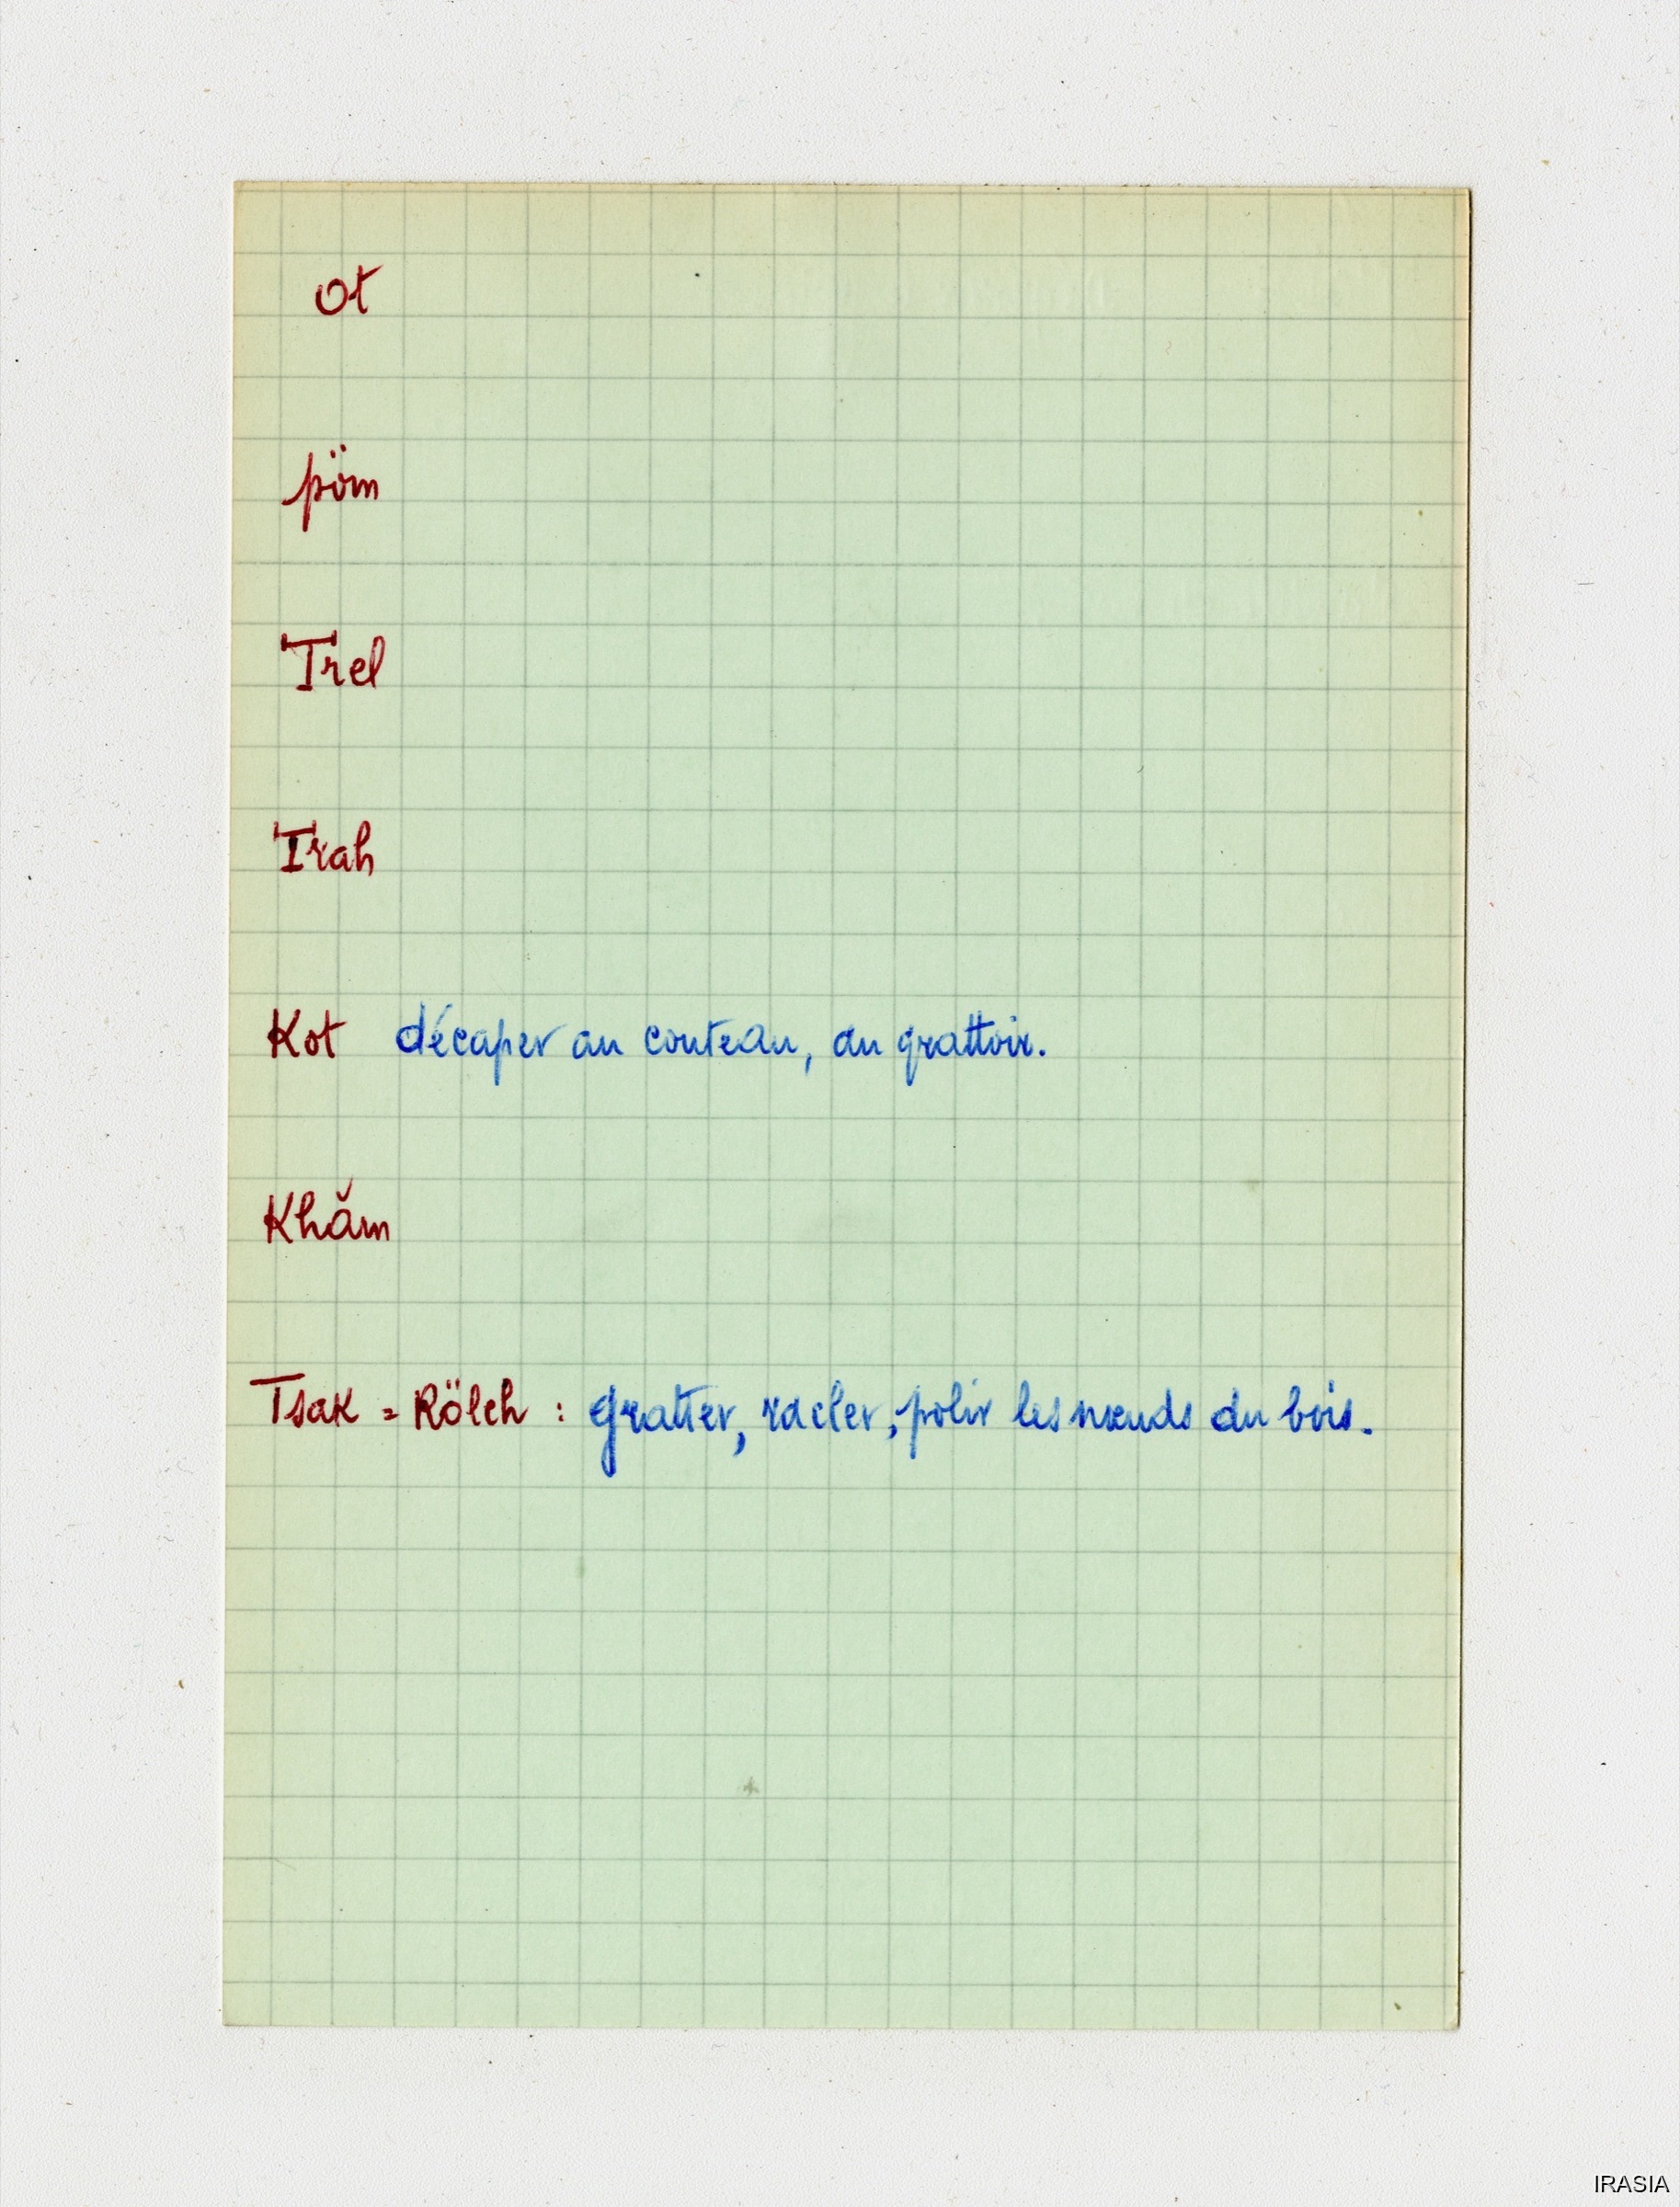 Ot
pöm
Trel
Trah
Kot décaper au couteau, au grattoir.
Khăm
Tsak = Röleh : gratter, racler, polir les nœuds du bois.
IRASIA